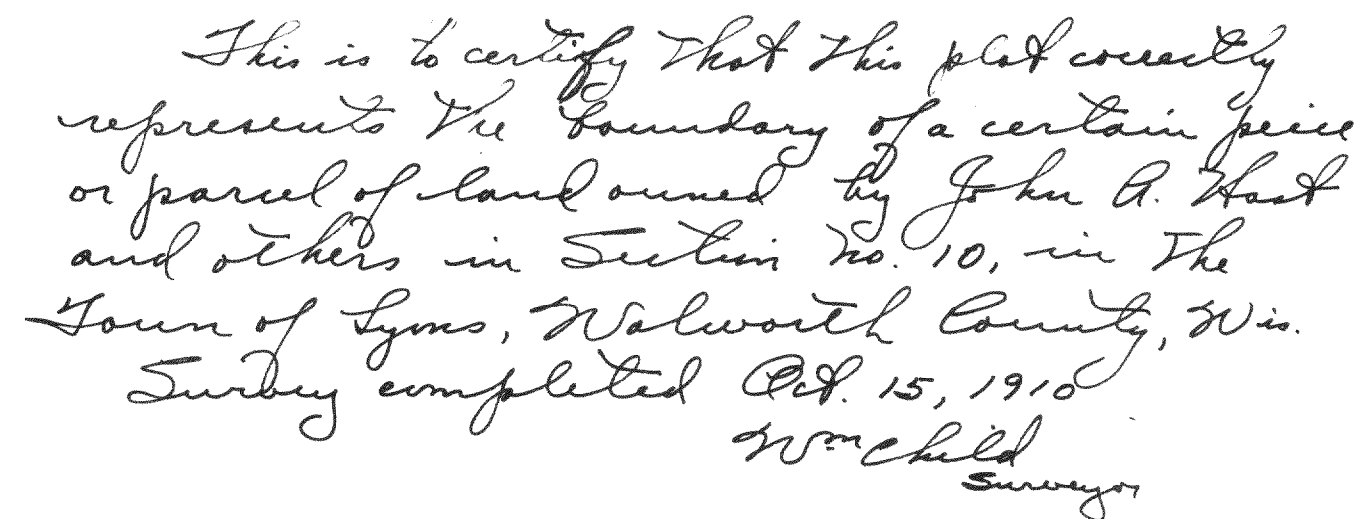 This is to certify that this plat correctly
represents the boundary of a certain peice
or parcel of land owned by John A. Host
and others in Section No. 10, in the
Town of Lyons, Walworth County, Wis.
Survey completed Oct. 15, 1910
Wm Child
Surveyor